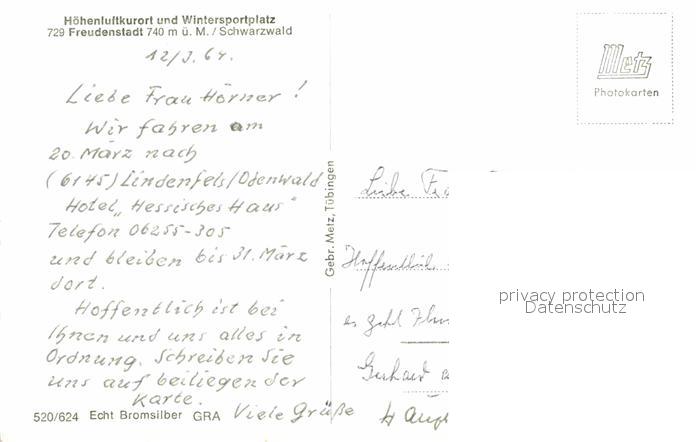 Höhenluftkurort und Wintersportplatz
729 Freudenstadt 740 m ü. M. / Schwarzwald
12/3.64.
Liebe Frau Hörner!
Wir fahren am
20. März nach
(6145) Lindenfels/Odenwald
Hotel "Hessisches Haus"
Telefon 06255-305
und bleiben bis 31. März
dort.
Hoffentlich ist bei
Ihnen und uns alles in
Ordnung. Schreiben Sie
uns auf beiliegender
Karte.
Viele Grüße
520/624 Echt Bromsilber GRA
Gebr. Metz, Tübingen
Metz
Photokarten
Liebe
Hoffentlich
es geht
Gerhard
privacy protection
Datenschutz